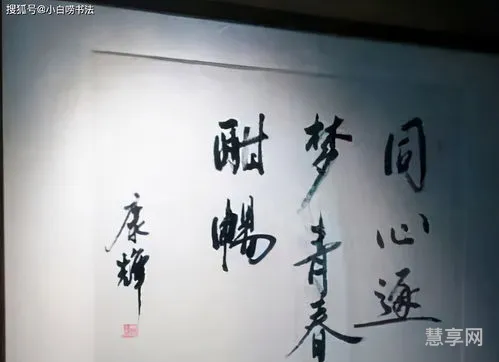 搜狐号@小白唠书法
同心逐
梦青春
酣畅
康辉
慧享网